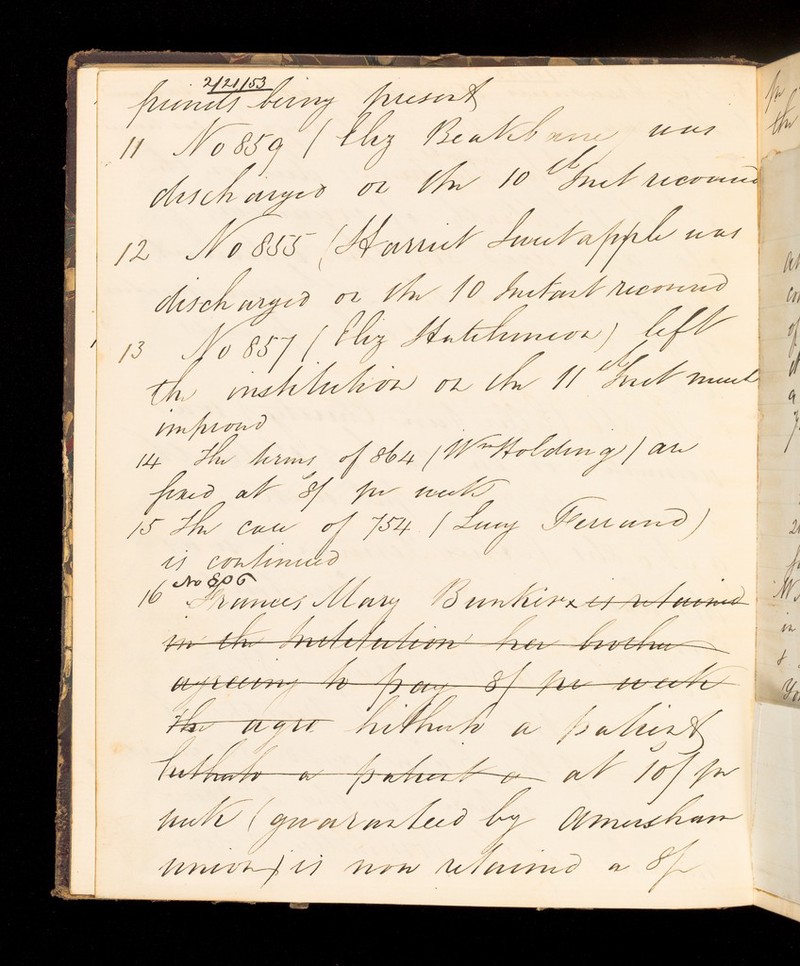 2/21/53
friends being present
11 No 859 (Eliz Beakbane was
discharged on the 10th Inst recovered
12 No 855 (Harriet Sweetapple was
discharged on the 10 Instant recovered
13 No 857 (Eliz Hutchinson) left
the institution on the 11th Inst much
improved
14 The terms of 864 (Wm Holding) are
fixed at 8/ per week
15 The case of 754 (Lucy Ferrand)
is continued
No 806
16 Frances Mary Bunker x is retained
in the Institution her brother
agreeing to pay 8/ per week
The hitherto a patient
hitherto a patient a at 10/ per
week (guaranteed by Amersham
union) is now retained a 8/-